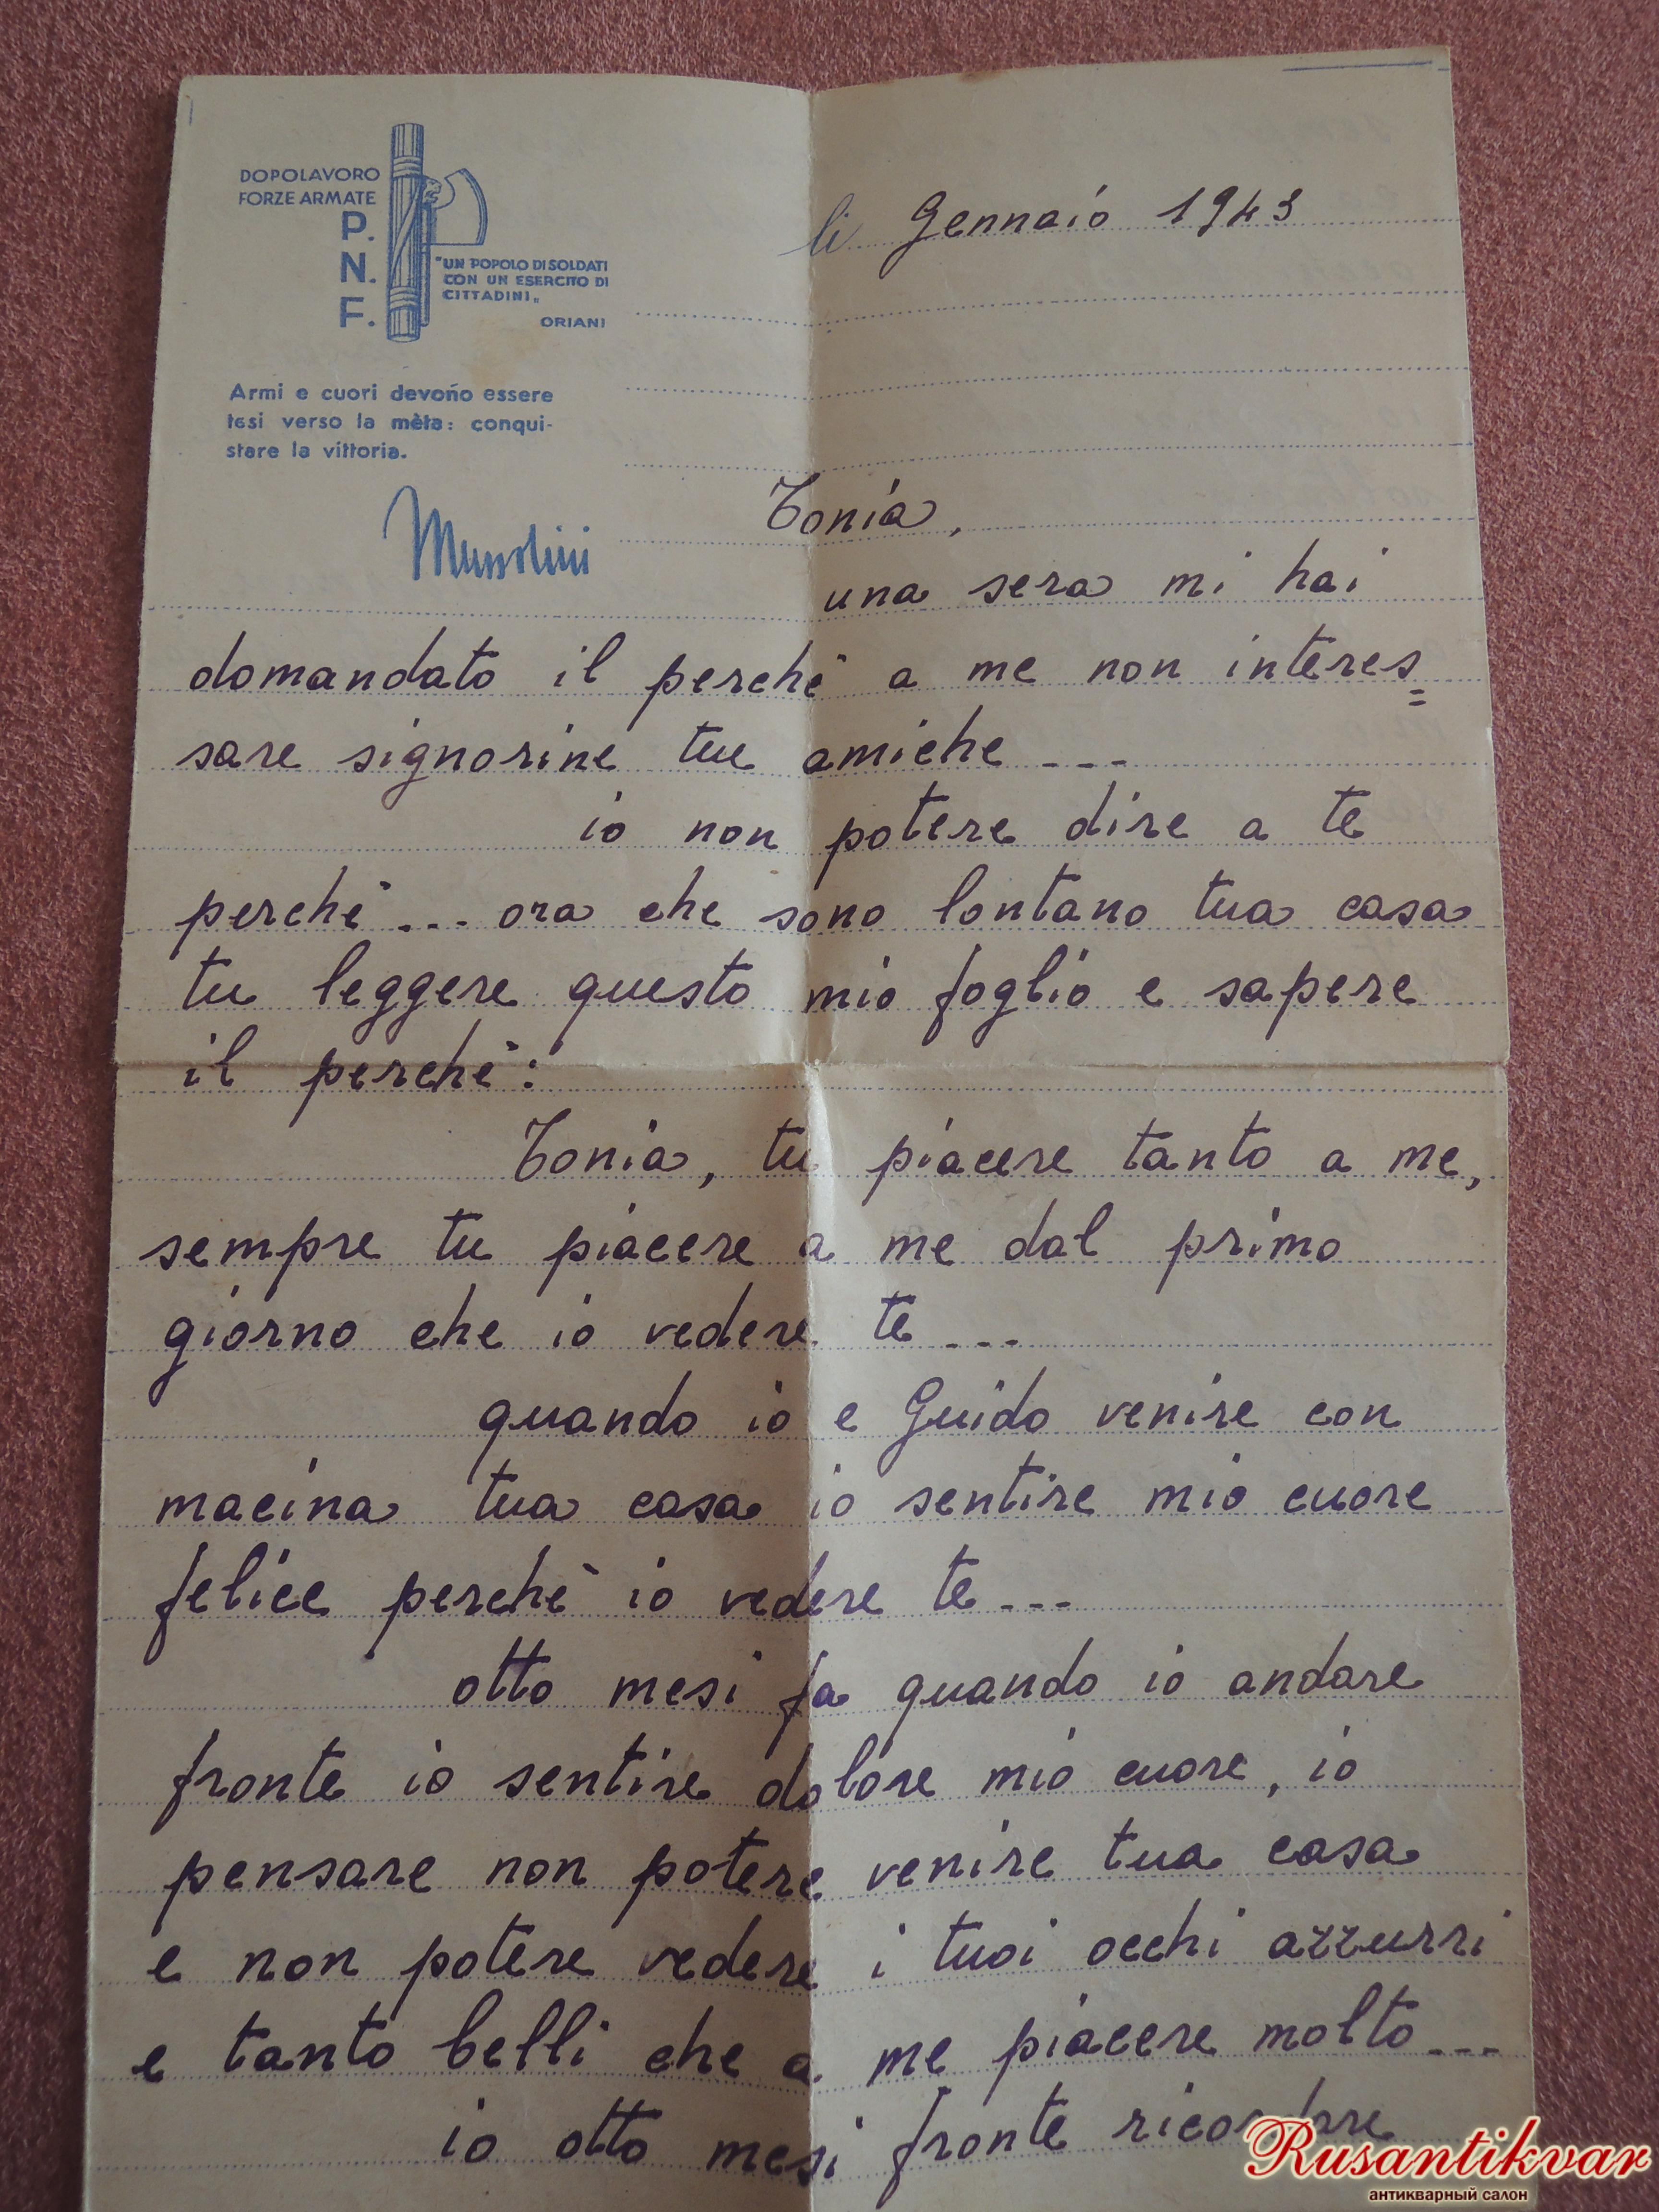 DOPOLAVORO
FORZE ARMATE
P.
N.
F.
"UN POPOLO DI SOLDATI
CON UN ESERCITO DI
CITTADINI„
ORIANI
Armi e cuori devono essere
tesi verso la mèta: conqui-
stare la vittoria.
Mussolini
li Gennaio 1943
Tonia,
una sera mi hai
domandato il perchè a me non interes=
sare signorine tue amiche ---
io non potere dire a te
perchè --- ora che sono lontano tua casa
tu leggere questo mio foglio e sapere
il perchè:
Tonia, tu piacere tanto a me,
sempre tu piacere a me dal primo
giorno che io vedere te ---
quando io e Guido venire con
macina tua casa io sentire mio cuore
felice perchè io vedere te ---
otto mesi fa quando io andare
fronte io sentire dolore mio cuore, io
pensare non potere venire tua casa
e non potere vedere i tuoi occhi azzurri
e tanto belli che a me piacere molto ---
io otto mesi fronte ricordare
Rusantikvar
антикварный салон